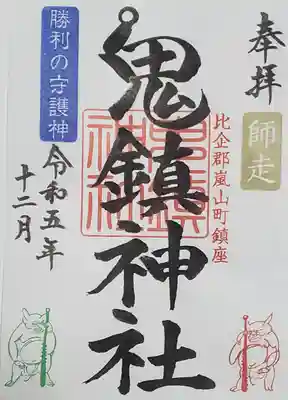 奉拝
師走
比企郡嵐山町鎮座
鬼鎮神社
鬼鎮神社
勝利の守護神
令和五年
十二月